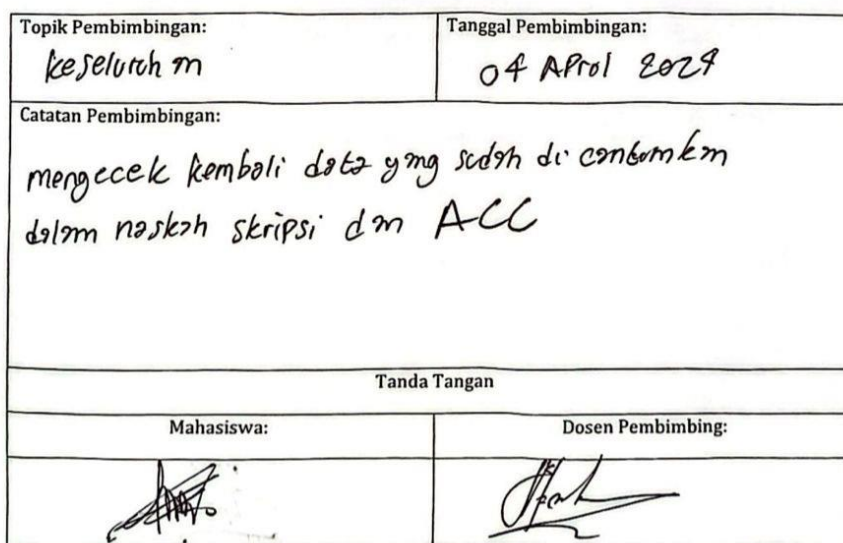 Topik Pembimbingan:
Keseluruhan
Tanggal Pembimbingan:
04 April 2024
Catatan Pembimbingan:
mengecek kembali data yang sudah di cantumkan
dalam naskah skripsi dan ACC
Tanda Tangan
Mahasiswa:
Dosen Pembimbing: